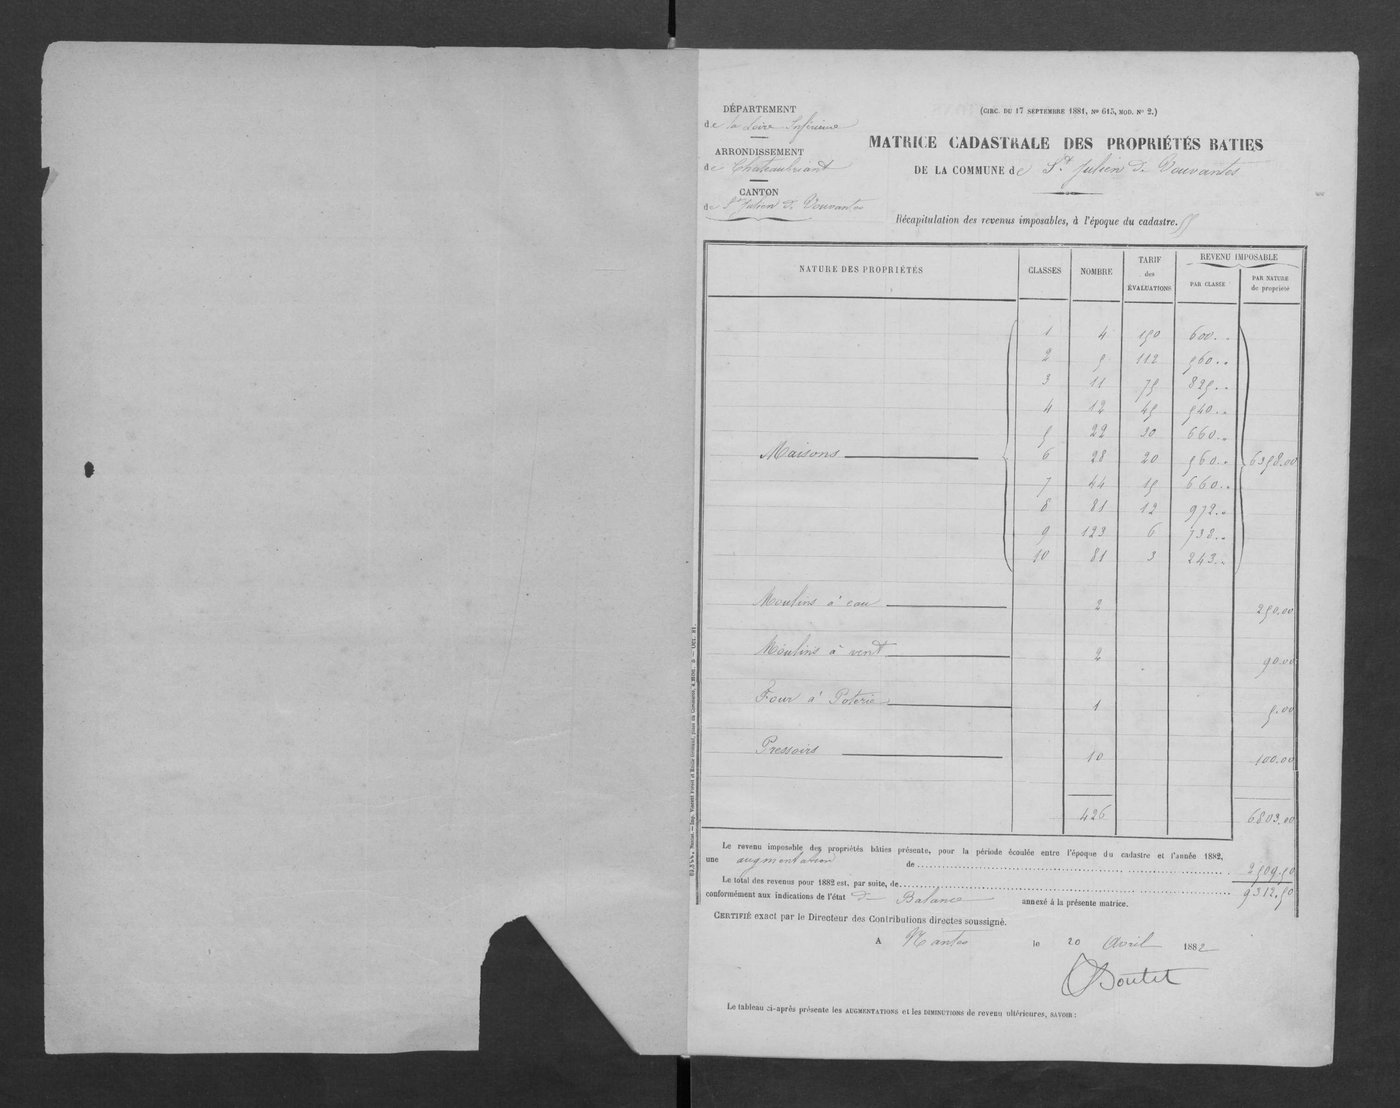 DÉPARTEMENT
de la Loire Inférieure
ARRONDISSEMENT
de Chateaubriant
CANTON
de St Julien de Vouvantes
(CIRC. DU 17 SEPTEMBRE 1881, No 615, MOD. No 2.)
MATRICE CADASTRALE DES PROPRIÉTÉS BATIES
DE LA COMMUNE de St Julien de Vouvantes
Récapitulation des revenus imposables, à l'époque du cadastre.
NATURE DES PROPRIÉTÉS CLASSES NOMBRE TARIF des ÉVALUATIONS REVENU IMPOSABLE
PAR CLASSE PAR NATURE de propriété
1 4 150 600..
2 5 112 560..
3 11 75 825..
4 12 45 540..
5 22 30 660..
Maisons 6 28 20 560.. 6358.00
7 44 15 660..
8 81 12 972..
9 123 6 738..
10 81 3 243..
Moulins à eau 2 250.00
Moulins à vent 2 90.00
Four à Poterie 1 5.00
Pressoirs 10 100.00
426 6803.00
Le revenu imposable des propriétés bâties présente, pour la période écoulée entre l'époque du cadastre et l'année 1882,
une augmentation de 2509.50
Le total des revenus pour 1882 est, par suite, de 9312.50
conformément aux indications de l'état de Balance annexé à la présente matrice.
CERTIFIÉ exact par le Directeur des Contributions directes soussigné.
A Nantes le 20 Avril 1882
Boutet
Le tableau ci-après présente les AUGMENTATIONS et les DIMINUTIONS de revenu ultérieures, SAVOIR :